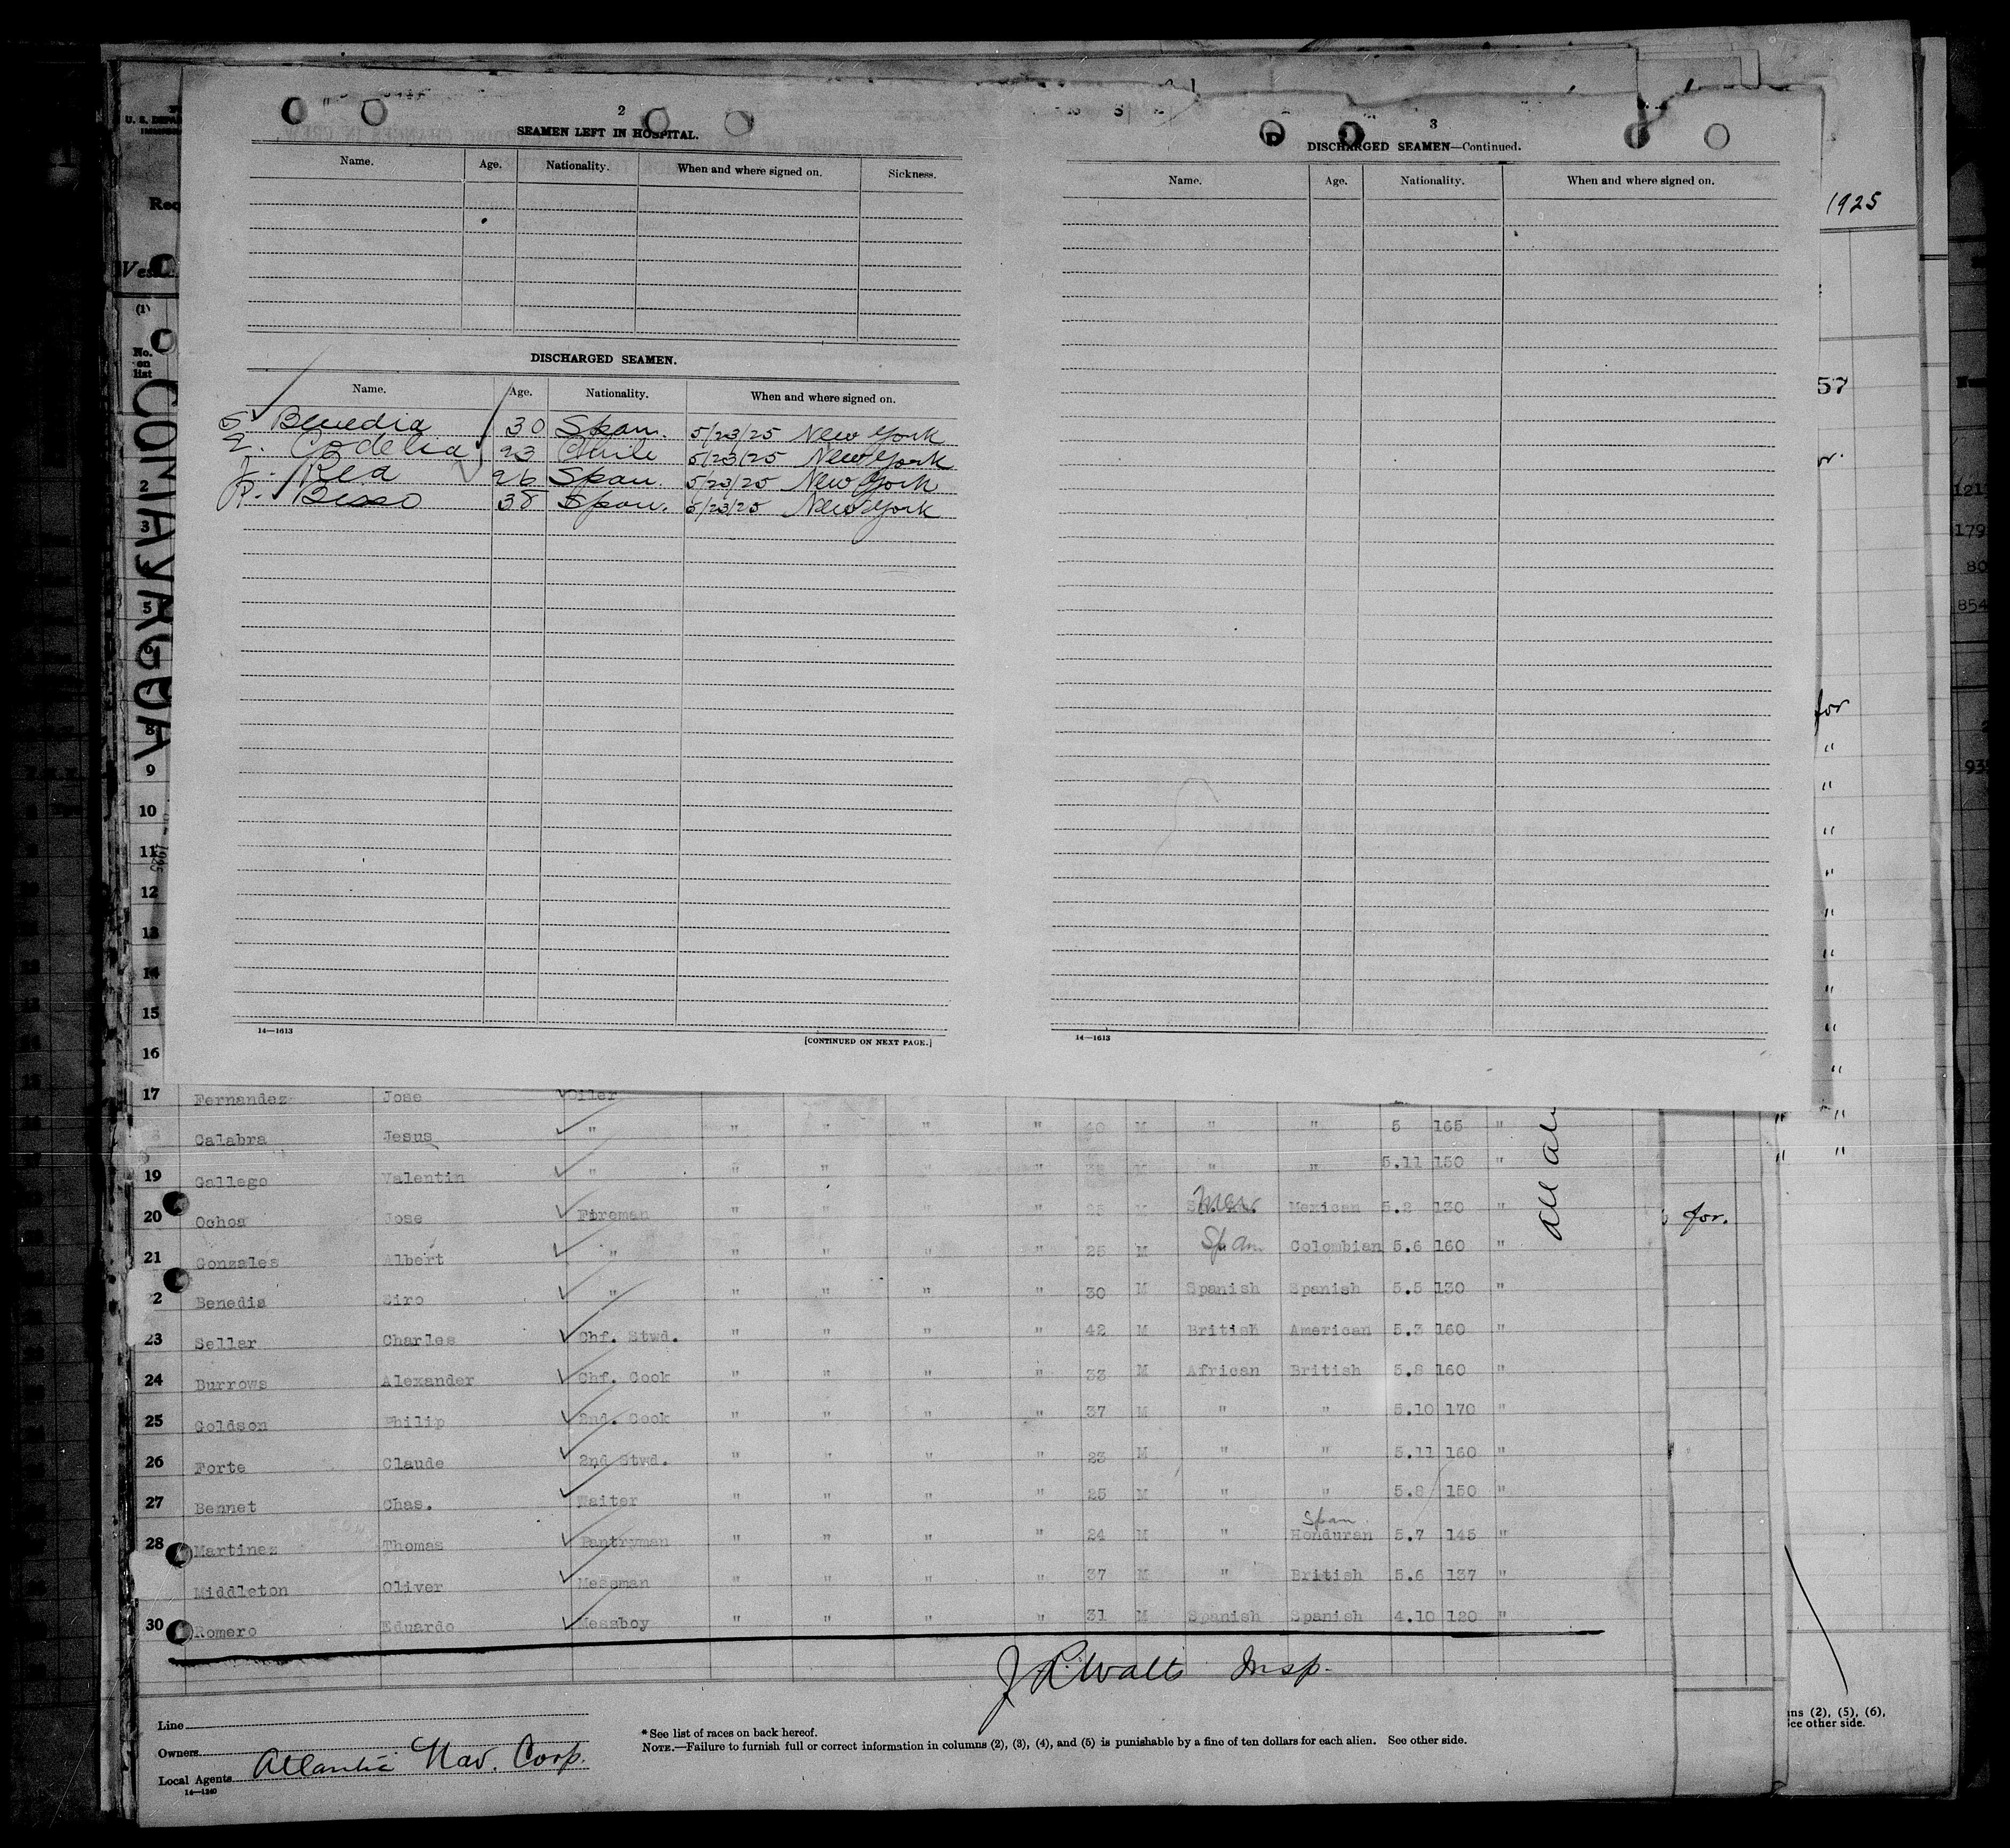 2
SEAMEN LEFT IN HOSPITAL.
Name. Age. Nationality. When and where signed on. Sickness.
DISCHARGED SEAMEN.
Name. Age. Nationality. When and where signed on.
S. Benedia 30 Span. 5/23/25 New York
E. Codelia 23 Chile 5/23/25 New York
J. Rea 26 Span. 5/23/25 New York
P. Besso 38 Span. 5/23/25 New York
14—1613
[CONTINUED ON NEXT PAGE.]
3
DISCHARGED SEAMEN—Continued.
Name. Age. Nationality. When and where signed on.
14—1613
1925
57
for
"
"
"
"
"
"
"
"
"
" "
" "
for.
121
179
80
854
93
U. S. DEPA
Req
Ves
(1)
No. on list
2
3
5
6
8
9
10
11
12
13
14
15
16
17 Fernandez Jose Oiler
Calabra Jesus " " " " " 40 M " " 5 165 "
19 Gallego Valentin " " " " " M " " 5.11 150 "
20 Ochoa Jose Fireman " " " " M Mex. Mexican 5.2 130 "
21 Gonzales Albert " " " " " 25 M Span Colombian 5.6 160 "
22 Benedia Siro " " " " " 30 M Spanish Spanish 5.5 130 "
23 Sellar Charles Chf. Stwd. " " " " 42 M British American 5.3 160 "
24 Burrows Alexander Chf. Cook " " " " 33 M African British 5.8 160 "
25 Goldson Philip 2nd. Cook " " " " 37 M " " 5.10 170 "
26 Forte Claude 2nd Stwd. " " " " 23 M " " 5.11 160 "
27 Bennet Chas. Waiter " " " " 25 M " " 5.8 150 "
Span.
28 Martinez Thomas Pantryman " " " " 24 M " Honduran 5.7 145 "
Middleton Oliver Messman " " " " 37 M " British 5.6 137 "
30 Romero Eduardo Messboy " " " " 31 M Spanish Spanish 4.10 120 "
J R Watts Insp.
Line
Owners
Local Agents Atlantic Nav. Corp.
14—1240
* See list of races on back hereof.
NOTE.—Failure to furnish full or correct information in columns (2), (3), (4), and (5) is punishable by a fine of ten dollars for each alien. See other side.
ns (2), (5), (6),
See other side.